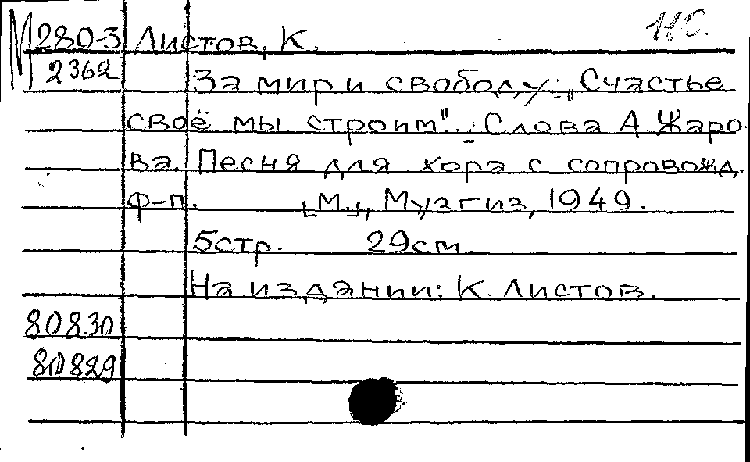 М 280-3 Листов, К.
2362 За мир и свободу: „Счастье
своё мы строим". Слова А Жаро
ва. Песня для хора с сопровожд.
ф-п. [М.], Музгиз, 1949.
5стр. 29см
На издании: К. Листов.
80830
80829